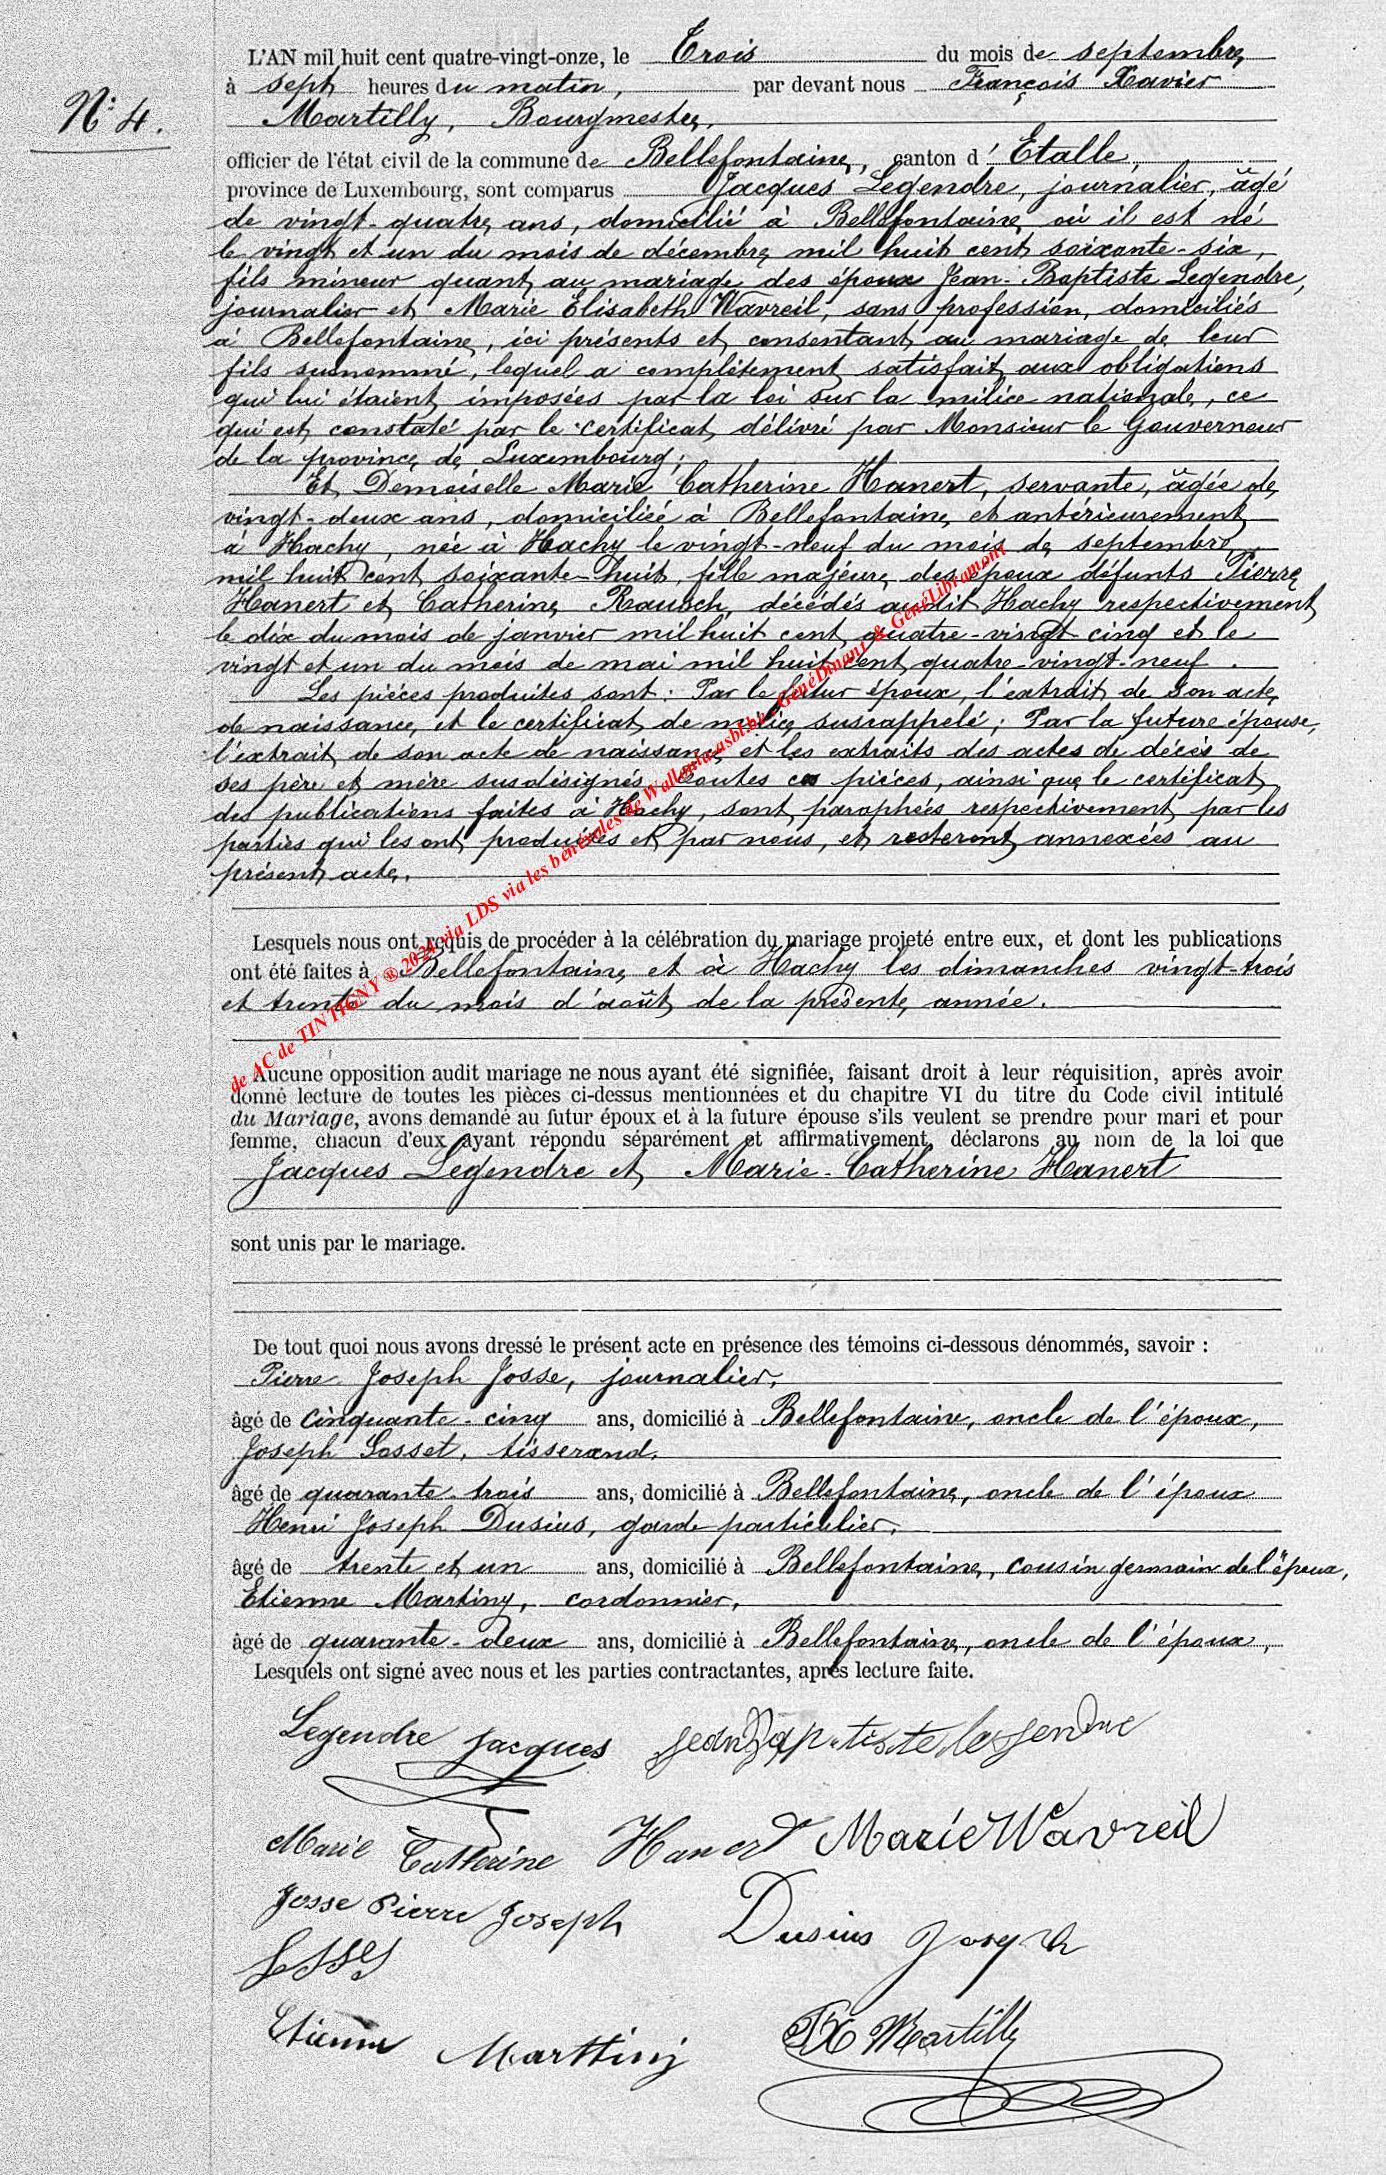 L'AN mil huit cent quatre-vingt-onze, le Trois du mois de septembre,
à sept heures du matin, par devant nous François Xavier
N° 4.
Martilly, Bourgmestre,
officier de l'état civil de la commune de Bellefontaine, canton d'Etalle,
province de Luxembourg, sont comparus Jacques Legendre, journalier, âgé
de vingt-quatre ans, domicilié à Bellefontaine où il est né
le vingt et un du mois de décembre mil huit cent soixante-six,
fils mineur quant au mariage des époux Jean-Baptiste Legendre,
journalier et Marie Elisabeth Wavreil, sans profession, domiciliés
à Bellefontaine, ici présents et consentant au mariage de leur
fils susnommé, lequel a complètement satisfait aux obligations
qui lui étaient imposées par la loi sur la milice nationale, ce
qui est constaté par le certificat délivré par Monsieur le Gouverneur
de la province de Luxembourg;
Et Demoiselle Marie Catherine Hanert, servante, âgée de
vingt-deux ans, domiciliée à Bellefontaine et antérieurement
à Hachy, née à Hachy le vingt-neuf du mois de septembre
mil huit cent soixante-huit, fille majeure des époux défunts Pierre
Hanert et Catherine Rausch, décédés audit Hachy respectivement
le dix du mois de janvier mil huit cent quatre-vingt cinq et le
vingt et un du mois de mai mil huit cent quatre-vingt-neuf.
Les pièces produites sont: Par le futur époux, l'extrait de son acte
de naissance, et le certificat de milice susrappelé; Par la future épouse,
l'extrait de son acte de naissance et les extraits des actes de décès de
ses père et mère susdésignés. Toutes ces pièces, ainsi que le certificat
des publications faites à Hachy, sont paraphées respectivement par les
parties qui les ont produites et par nous, et resteront annexées au
présent acte.
Lesquels nous ont requis de procéder à la célébration du mariage projeté entre eux, et dont les publications
ont été faites à Bellefontaine et à Hachy les dimanches vingt-trois
et trente du mois d'août de la présente année.
de AC de TINTIGNY ® 2024 via LDS via les bénévoles de Wallonia-asbl.be, GénéDinant & GénéLibramont
Aucune opposition audit mariage ne nous ayant été signifiée, faisant droit à leur réquisition, après avoir
donné lecture de toutes les pièces ci-dessus mentionnées et du chapitre VI du titre du Code civil intitulé
du Mariage, avons demandé au futur époux et à la future épouse s'ils veulent se prendre pour mari et pour
femme, chacun d'eux ayant répondu séparément et affirmativement, déclarons au nom de la loi que
Jacques Legendre et Marie-Catherine Hanert
sont unis par le mariage.
De tout quoi nous avons dressé le présent acte en présence des témoins ci-dessous dénommés, savoir :
Pierre Joseph Josse, journalier,
âgé de cinquante-cinq ans, domicilié à Bellefontaine, oncle de l'époux,
Joseph Sosset, tisserand,
âgé de quarante-trois ans, domicilié à Bellefontaine, oncle de l'époux
Henri Joseph Dusius, garde particulier,
âgé de trente et un ans, domicilié à Bellefontaine, cousin germain de l'époux,
Etienne Martiny, cordonnier,
âgé de quarante-deux ans, domicilié à Bellefontaine, oncle de l'époux,
Lesquels ont signé avec nous et les parties contractantes, après lecture faite.
Legendre Jacques Jean Baptiste legendre
Marie Catherine Hanert Marie Wavreil
Josse Pierre Joseph Dusius Joseph
Etienne Marttiny FX Martilly